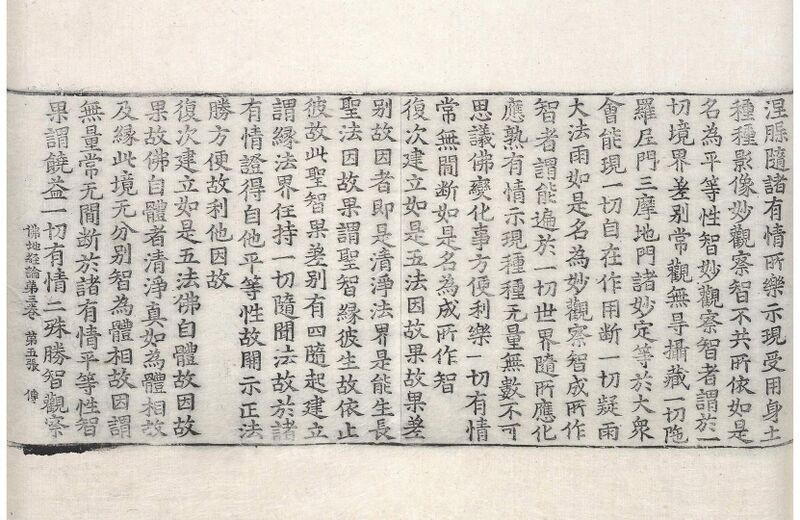 涅縣隨諸有情所樂示現受用身土
種種影像妙觀察智不共所依如是
名為平等性智妙觀察智者謂於一
切境界差別常觀無㝵攝藏一切陁
羅尼門三摩地門諸妙定等於大衆
會能現一切自在作用断一切疑雨
大法雨如是名為妙觀察智成所作
智者謂能遍於一切世界隨所應化
應熟有情示現種種无量無數不可
思議佛變化事方便利樂一切有情
常無間断如是名為成所作智
復次建立如是五法因故果故果差
别故因者即是清淨法界是能生長
聖法因故果謂聖智緣彼生故依止
彼故此聖智果差別有四隨起建立
謂緣法界任持一切隨聞法故於諸
有情證得自他平等性故開示正法
勝方便故利他因故
復次建立如是五法佛自體故因故
果故佛自體者清淨真如為體相故
及緣此境无分别智為體相故因謂
無量常无間断於諸有情平等性智
佛地經論第三卷 第五張 傳
果謂饒益一切有情二殊勝智觀察